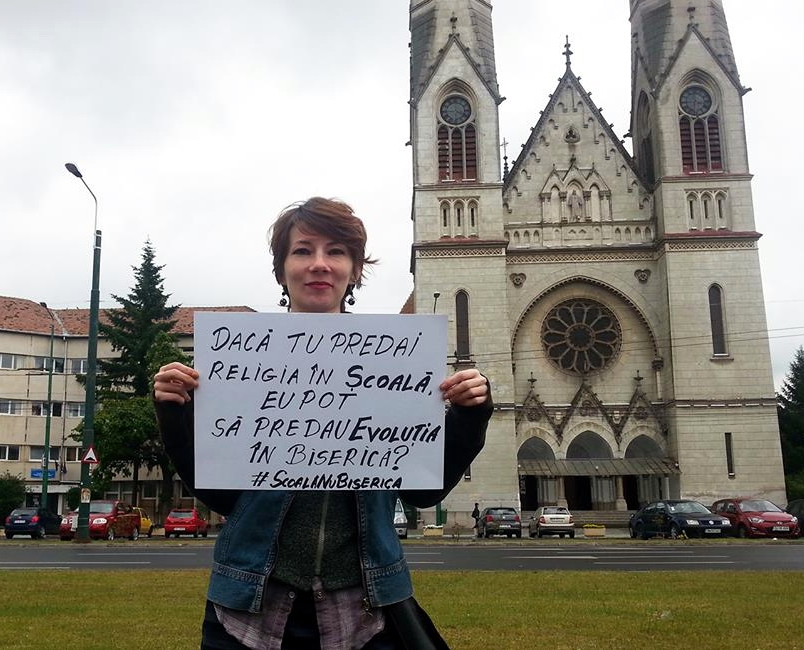 DACĂ TU PREDAI
RELIGIA ÎN ȘCOALĂ,
EU POT
SĂ PREDAU EVOLUȚIA
ÎN BISERICĂ?
#ȘCOALANUBISERICA